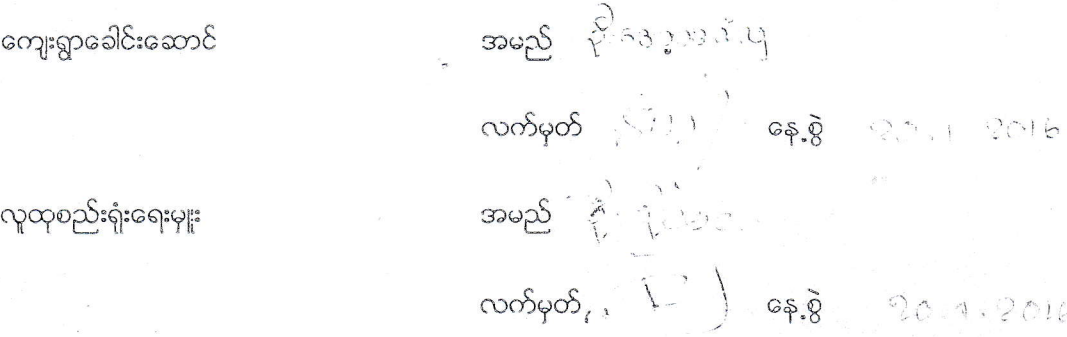 ကျေးရွာခေါင်းဆောင် အမည်
လက်မှတ် နေ့စွဲ 20.1.2016
လူထုစည်းရုံးရေးမှူး အမည်
လက်မှတ် နေ့စွဲ 20.1.2016